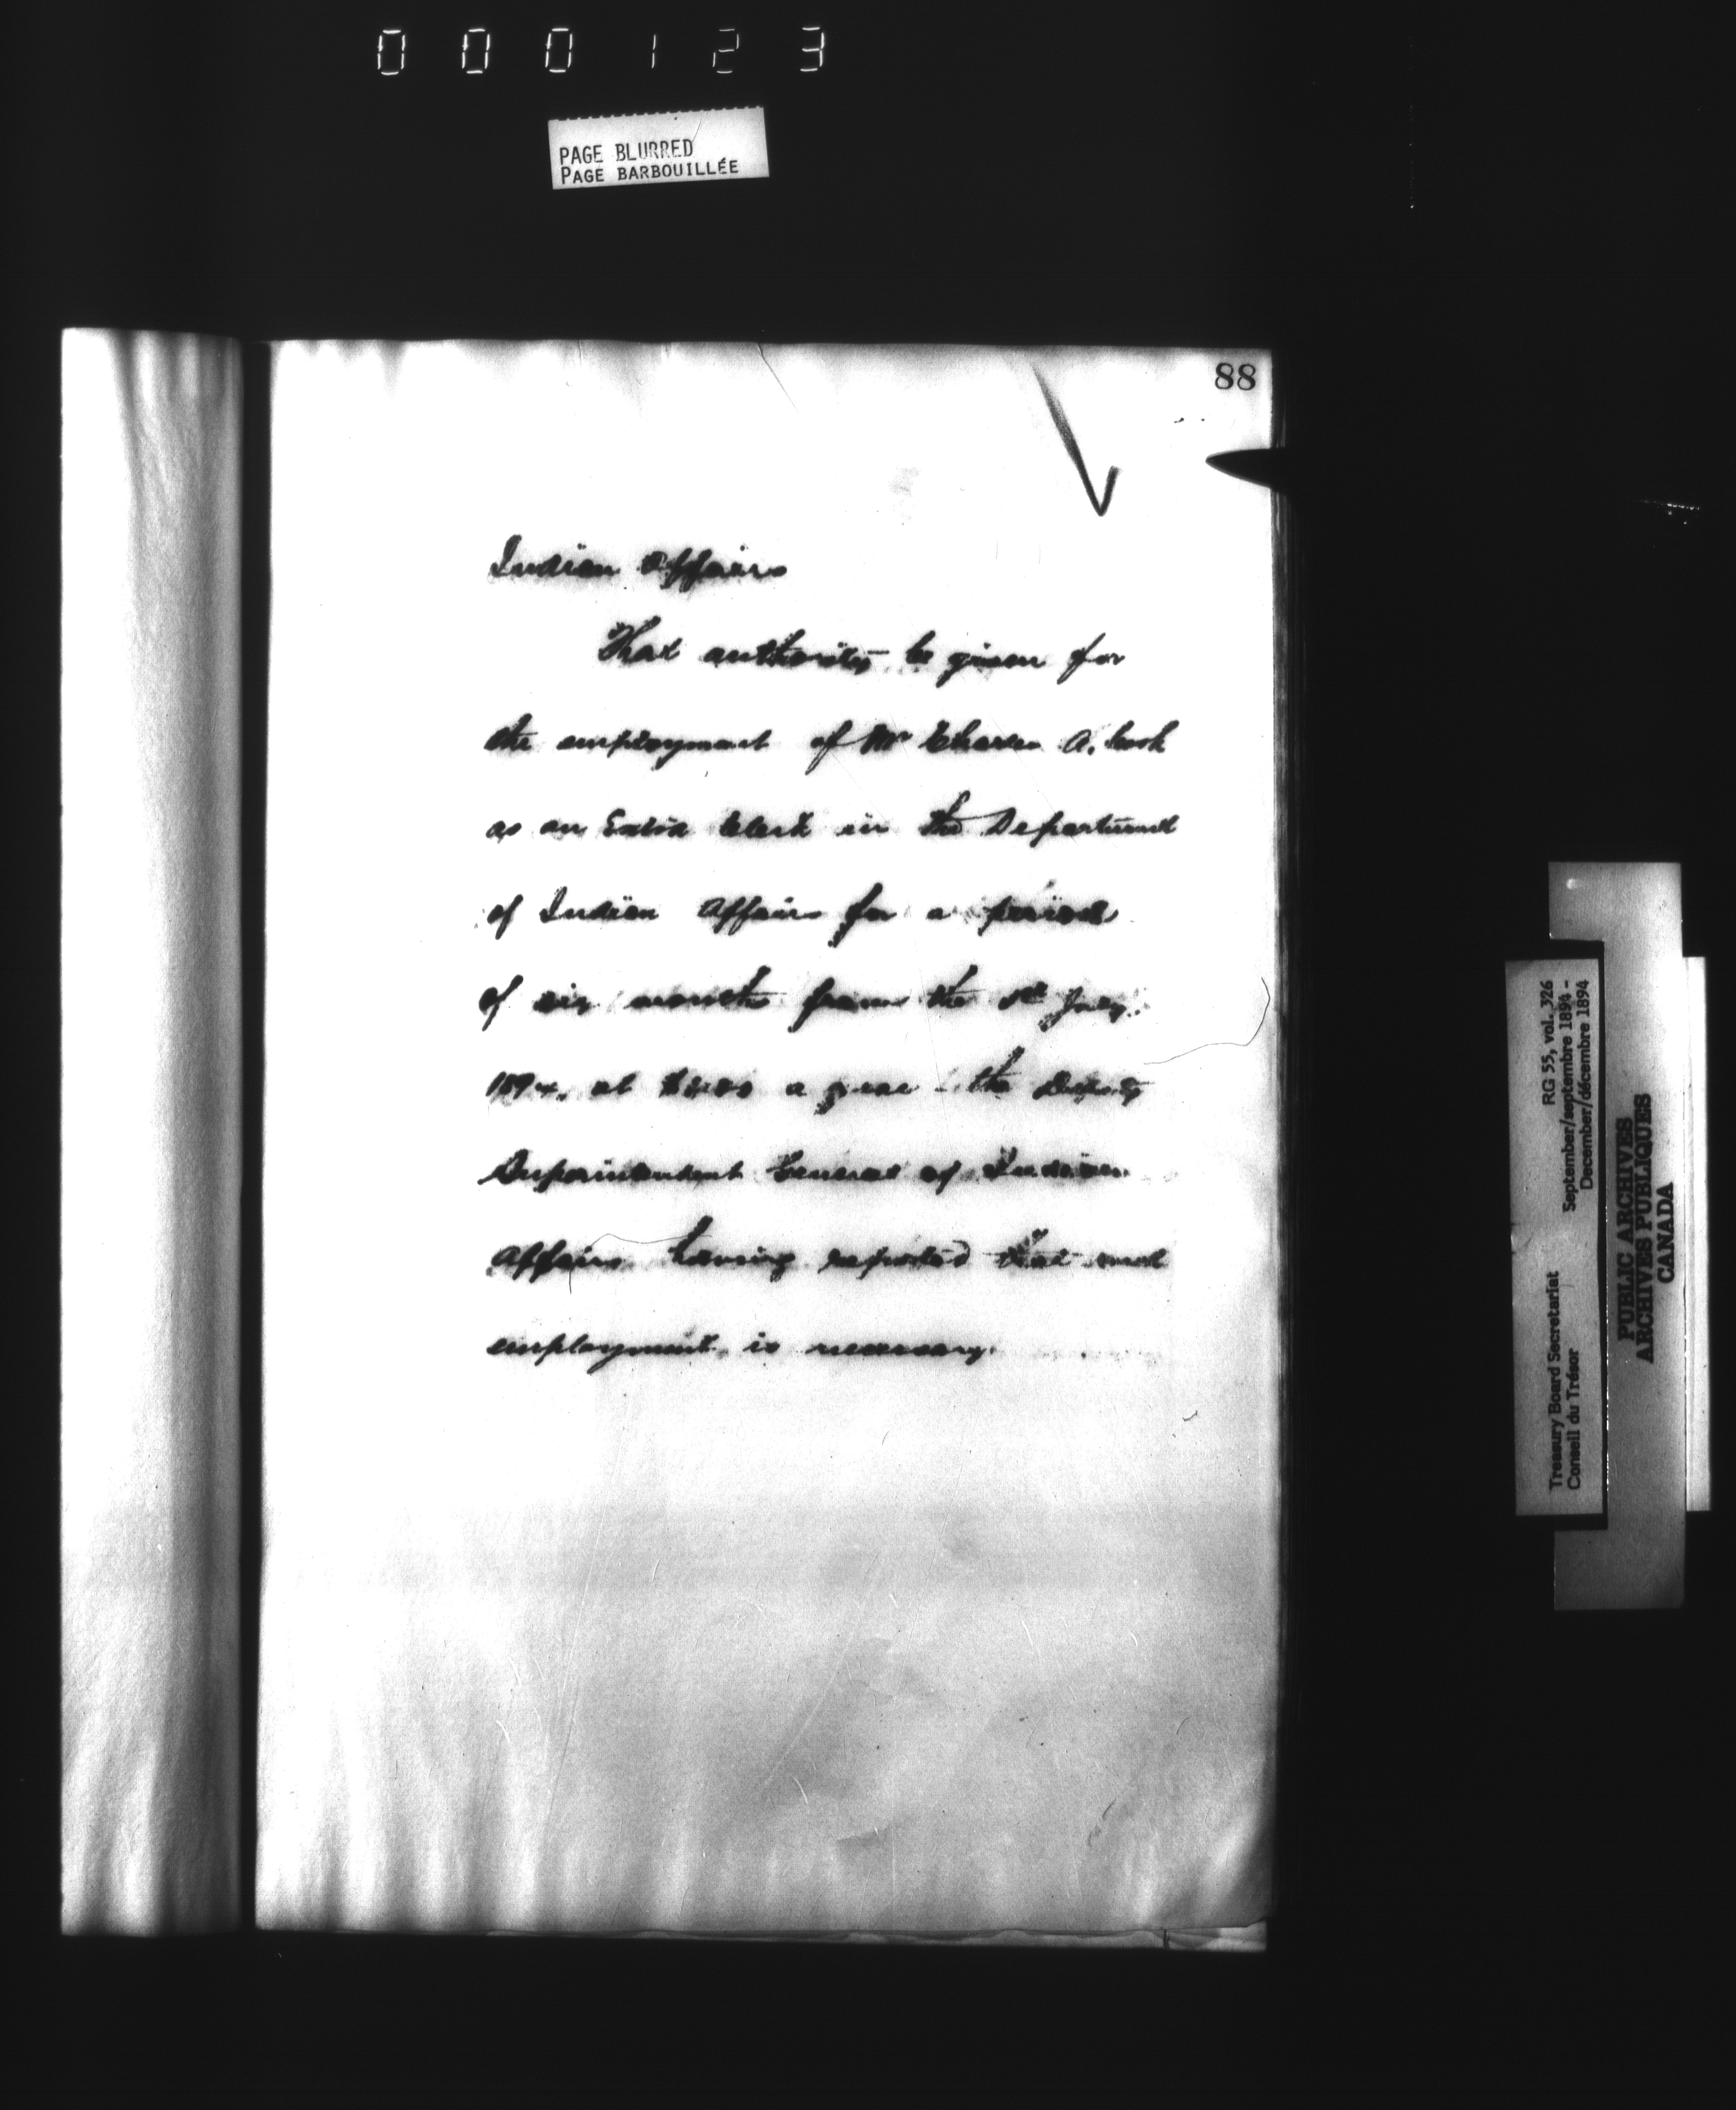 000123
PAGE BLURRED
PAGE BARBOUILLÉE
88
Indian Affairs
That authority be given for
the employment of Mr Charles A. Cook
as an Extra Clerk in the Department
of Indian Affairs for a period
of six months from the 1st July
1894, at a year - the Deputy
Superintendent General of Indian
Affairs having reported that such
employment is necessary.
Treasury Board Secretariat RG 55, vol. 326
Conseil du Trésor September/septembre 1894 -
December/décembre 1894
PUBLIC ARCHIVES
ARCHIVES PUBLIQUES
CANADA